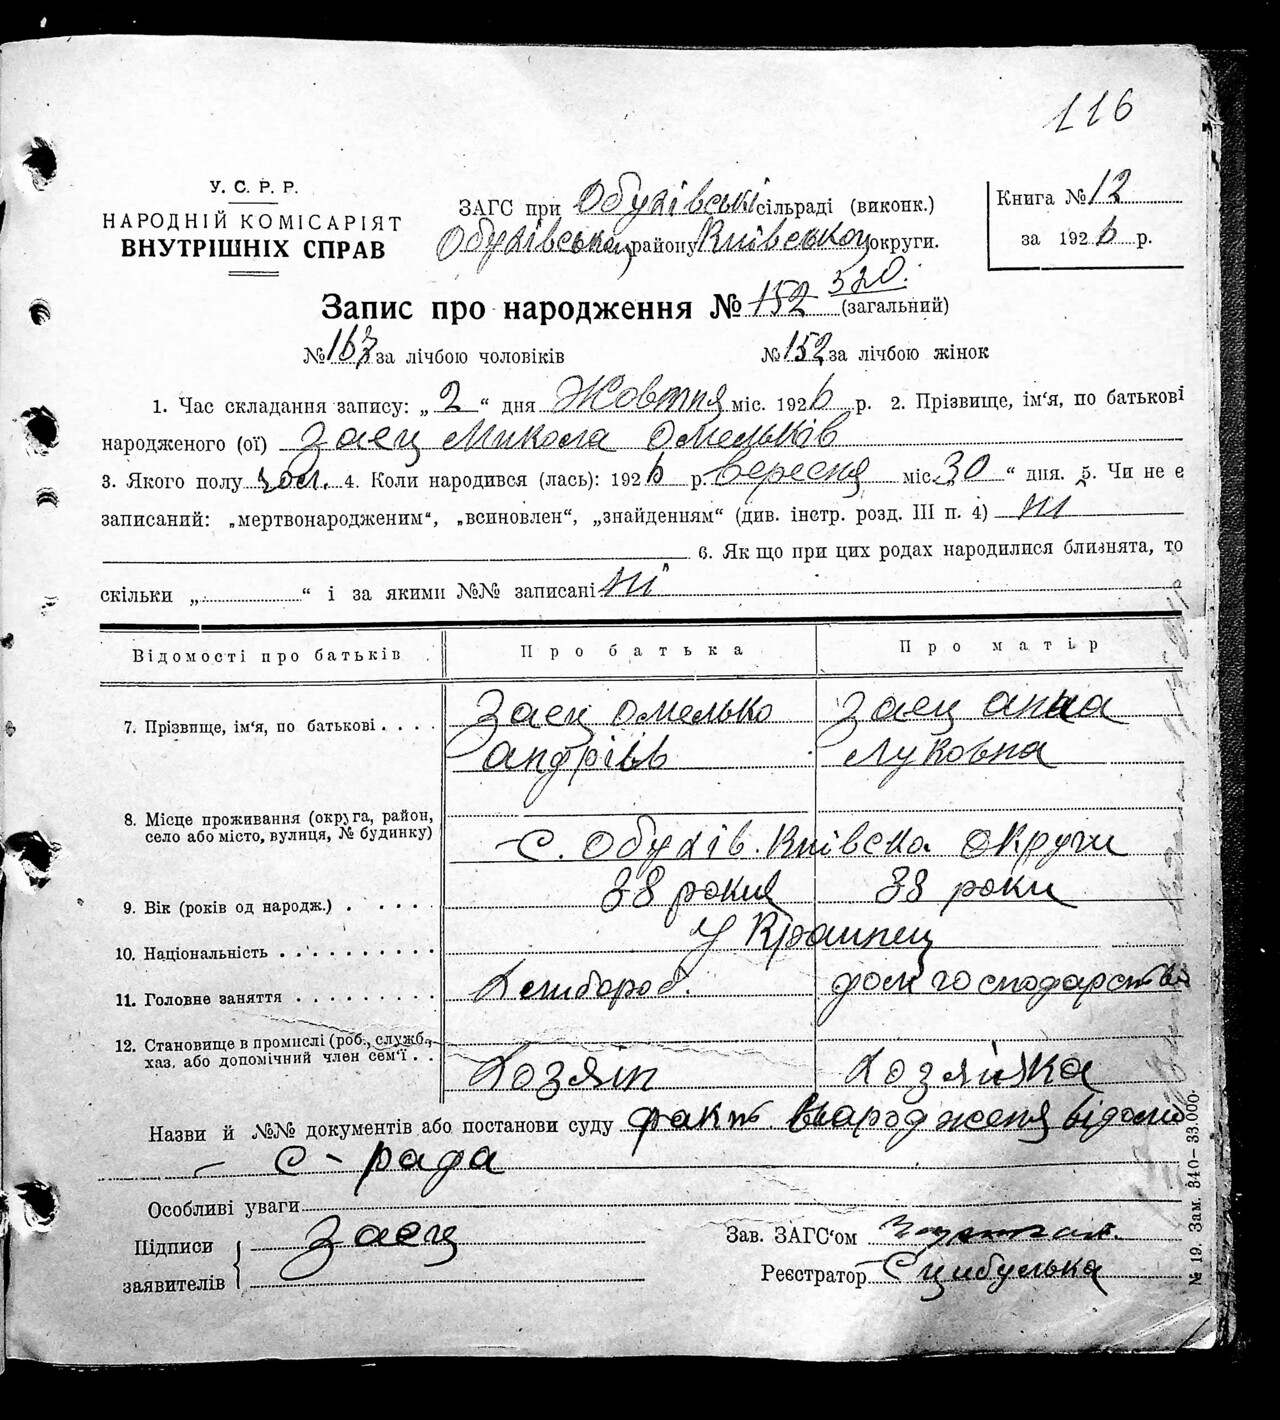 116
У. С. Р. Р.
НАРОДНІЙ КОМІСАРІЯТ
ВНУТРІШНІХ СПРАВ
ЗАГС при Обухівські сільраді (виконк.)
Обухівськоу району Київськоу округи.
Книга № 12
за 1926 р.
Запис про народження № 152 320. (загальний)
№ 167 за лічбою чоловіків № 152 за лічбою жінок
1. Час складання запису: „2“ дня Жовтня міс. 1926 р. 2. Прізвище, ім'я, по батькові
народженого (ої) Заец Микола Омельків
3. Якого полу чол. 4. Коли народився (лась): 1926 р. вересня міс. 30 “ дня. 5. Чи не є
записаний: „мертвонародженим“, „всиновлен“, „знайденням“ (див. інстр. розд. III п. 4) Ні
6. Якщо при цих родах народилися близнята, то
скільки „ “ і за якими №№ записані Ні
Відомості про батьків Про батька Про матір
7. Прізвище, ім'я, по батькові . . . . Заец Омелько Заец Анна
Андрієв Луковна
8. Місце проживання (округа, район,
село або місто, вулиця, № будинку) с. Обухів. Київска Округи
9. Вік (років од народж.) . . . . . 38 рокив 38 роки
10. Національність . . . . . . . . . . Украинец
11. Головне заняття . . . . . . . . . Хлибороб. дом господарство
12. Становище в промислі (роб., служб.,
хаз. або допомічний член сем'ї . . Хозяин Хозяйка
Назви й №№ документів або постанови суду факт народженя відомо
– С – рада
Особливі уваги
Підписи
заявителів Заец
Зав. ЗАГС'ом
Реєстратор С Цибулька
№ 19. Зам. 340–33.000